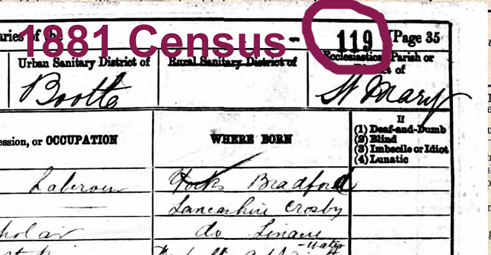 aries of the
1881 Census-
119
[Page 35
Urban Sanitary District of
Rural Sanitary District of
Ecclesiastical Parish or
of
Bootle
St Mary
ession, or OCCUPATION
WHERE BORN
If
(1) Deaf-and-Dumb
(2) Blind
(3) Imbecile or Idiot
(4) Lunatic
Labourer
Yorks Bradford
Lancashire Crosby
holar
do Linacre